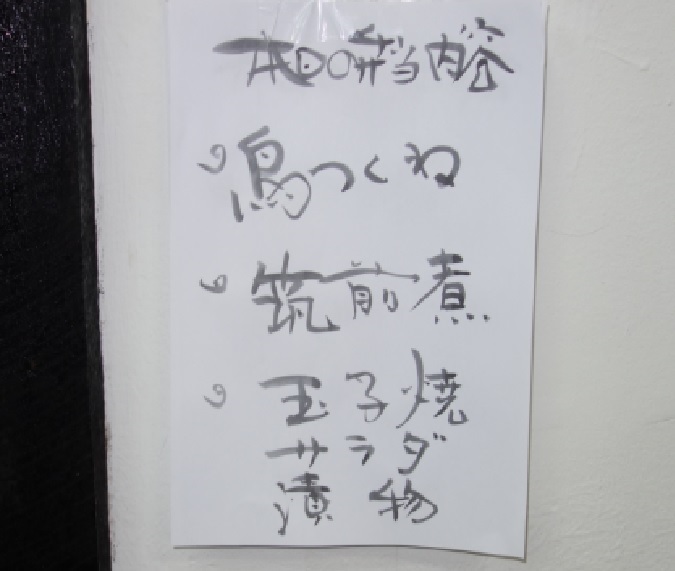 本日の弁当内容
鳥つくね
筑前煮
玉子焼
サラダ
漬物